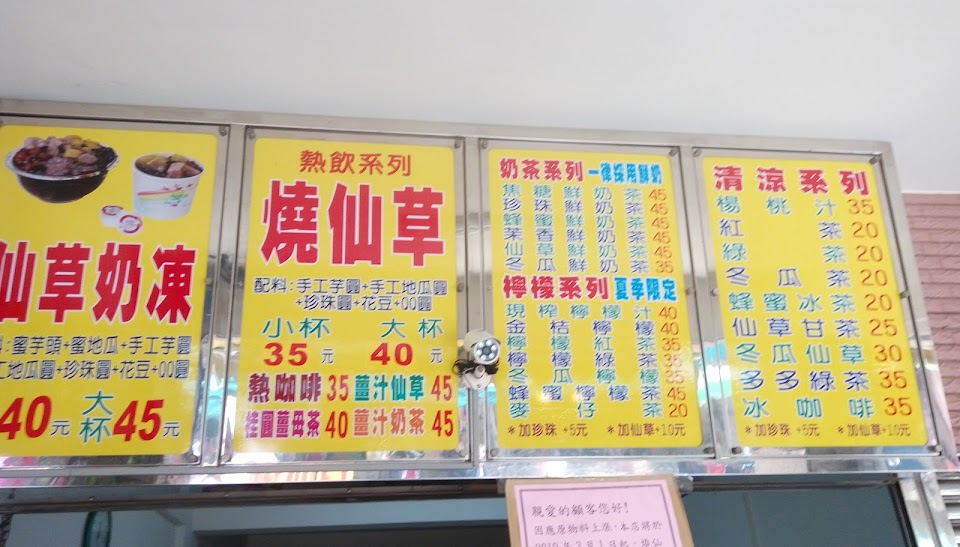 仙草奶凍
:蜜芋頭+蜜地瓜+手工芋圓
工地瓜圓+珍珠圓+花豆+00圓
40元 大杯45元
熱飲系列
燒仙草
配料:手工芋圓+手工地瓜圓
+珍珠圓+花豆+00圓
小杯 大杯
35元 40元
熱咖啡35 薑汁仙草45
桂圓薑母茶40 薑汁奶茶45
奶茶系列 一律採用鮮奶
焦糖鮮奶茶45
珍珠鮮奶茶45
蜂蜜鮮奶茶45
茉香鮮奶茶45
仙草鮮奶茶45
冬瓜鮮奶茶35
檸檬系列 夏季限定
現榨檸檬汁40
金桔檸檬40
檸檬紅茶35
檸檬綠茶35
冬瓜檸檬35
蜂蜜檸檬45
麥仔茶20
*加珍珠+5元 *加仙草+10元
清涼系列
楊桃汁35
紅茶20
綠茶20
冬瓜茶20
蜂蜜冰茶20
仙草甘茶25
冬瓜仙草30
多多綠茶35
冰咖啡35
*加珍珠+5元 *加仙草+10元
親愛的顧客您好!
因應原物料上漲,本店將於
2019年3月1日起,燒仙